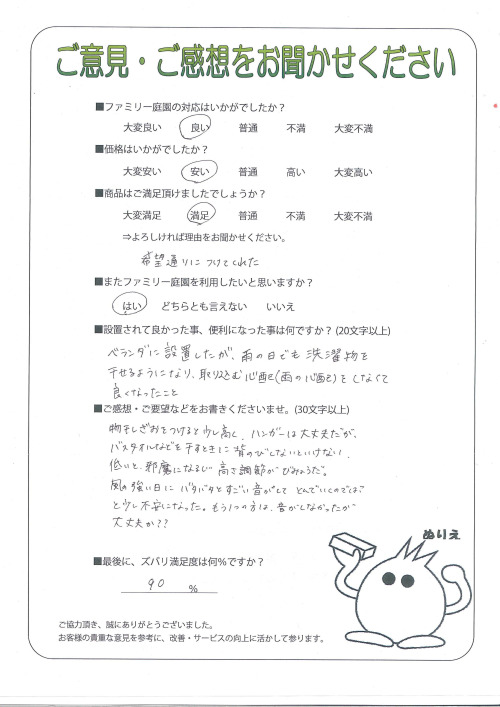 ご意見・ご感想をお聞かせください
■ファミリー庭園の対応はいかがでしたか？
大変良い 良い 普通 不満 大変不満
■価格はいかがでしたか？
大変安い 安い 普通 高い 大変高い
■商品はご満足頂けましたでしょうか？
大変満足 満足 普通 不満 大変不満
⇒よろしければ理由をお聞かせください。
希望通りにつけてくれた
■またファミリー庭園を利用したいと思いますか？
はい どちらとも言えない いいえ
■設置されて良かった事、便利になった事は何ですか？(20文字以上)
ベランダに設置したが、雨の日でも洗濯物を
干せるようになり、取り込む心配(雨の心配)をしなくて
良くなったこと
■ご感想・ご要望などをお書きくださいませ。(30文字以上)
物干しざおをつけると少し高く、ハンガーは大丈夫だが、
バスタオルなどを干すときに背のびしないといけない。
低いと、邪魔になるし 高さ調節がびみょうだ。
風の強い日に バタバタとすごい音がして とんでいくのでは
と少し不安になった。もう1つの方は、音がしなかったが
大丈夫か??
■最後に、ズバリ満足度は何％ですか？
90 %
ぬりえ
ご協力頂き、誠にありがとうございました。
お客様の貴重な意見を参考に、改善・サービスの向上に活かして参ります。